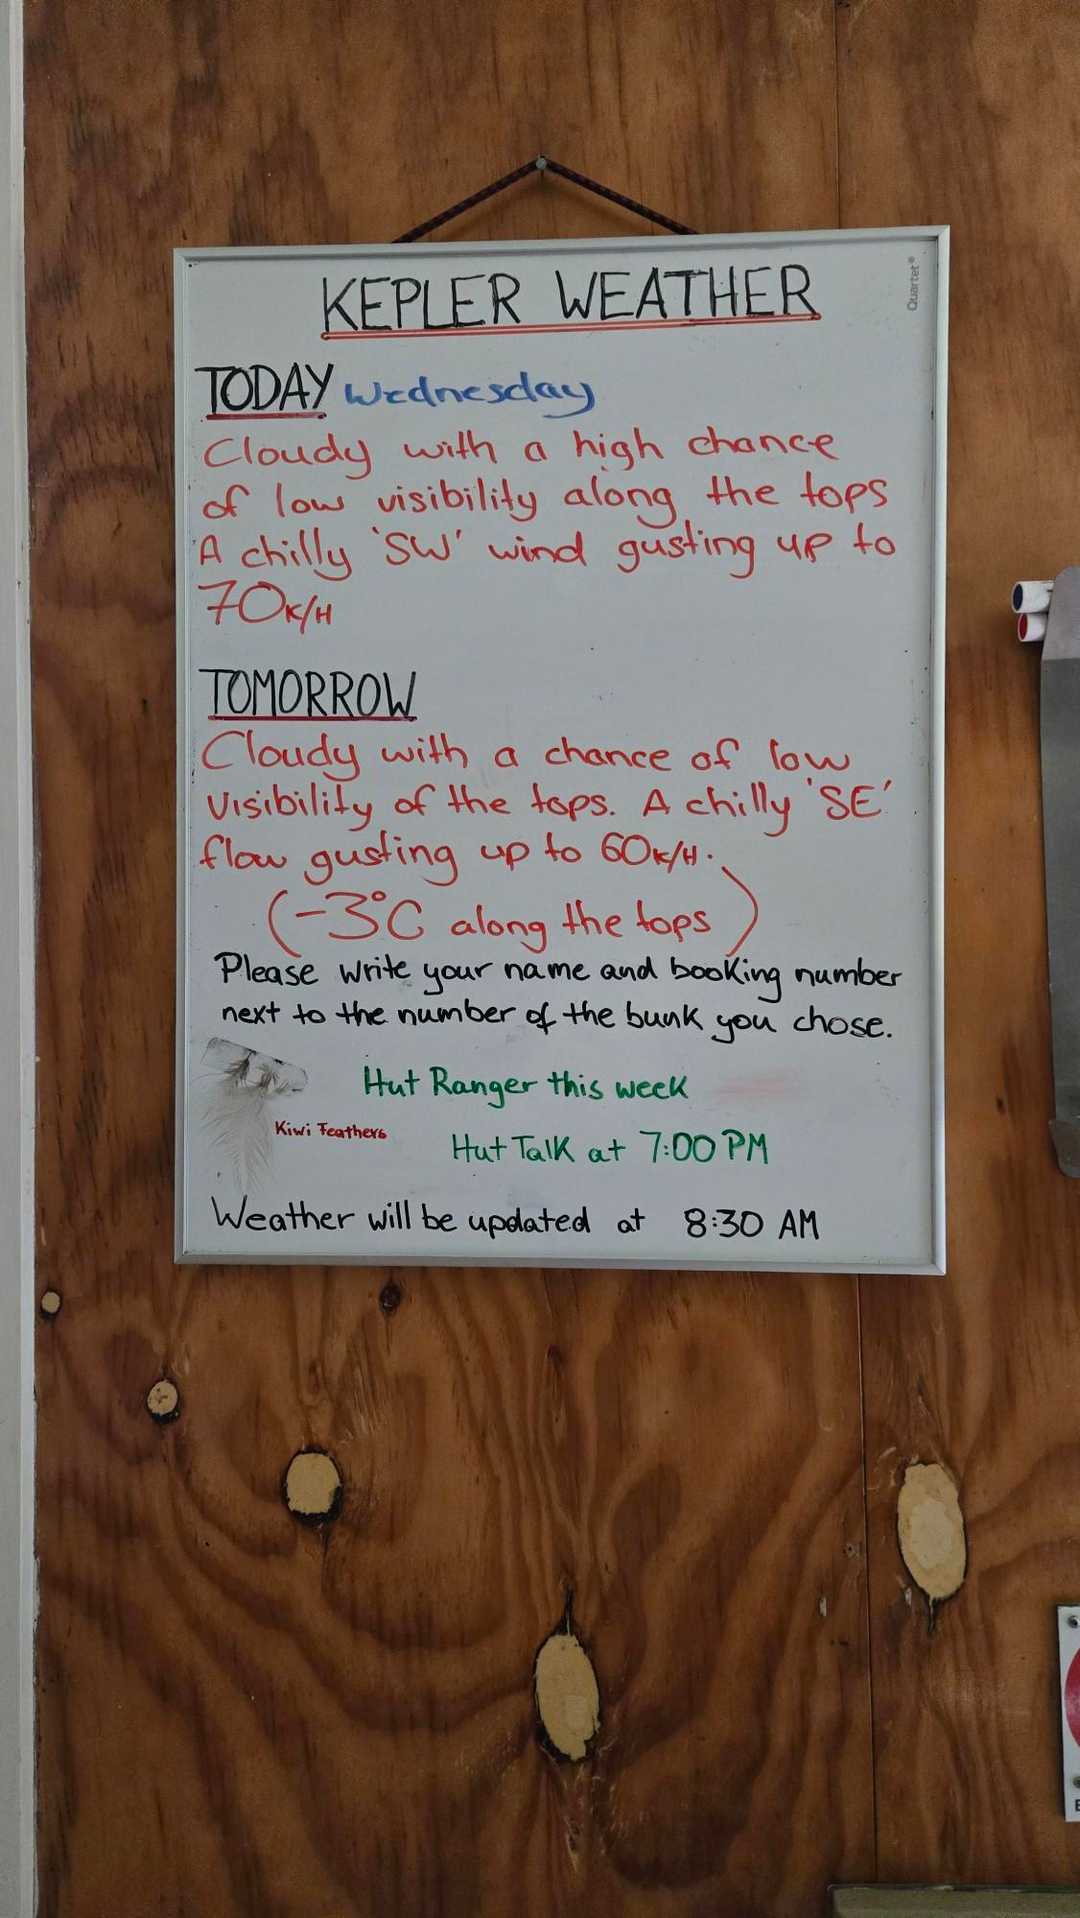 Quartet®
KEPLER WEATHER
TODAY Wednesday
Cloudy with a high chance
of low visibility along the tops
A chilly 'SW' wind gusting up to
70K/H
TOMORROW
Cloudy with a chance of low
visibility of the tops. A chilly 'SE'
flow gusting up to 60K/H.
(-3°C along the tops)
Please write your name and booking number
next to the number of the bunk you chose.
Hut Ranger this week
Kiwi Feathers
Hut Talk at 7:00 PM
Weather will be updated at 8:30 AM